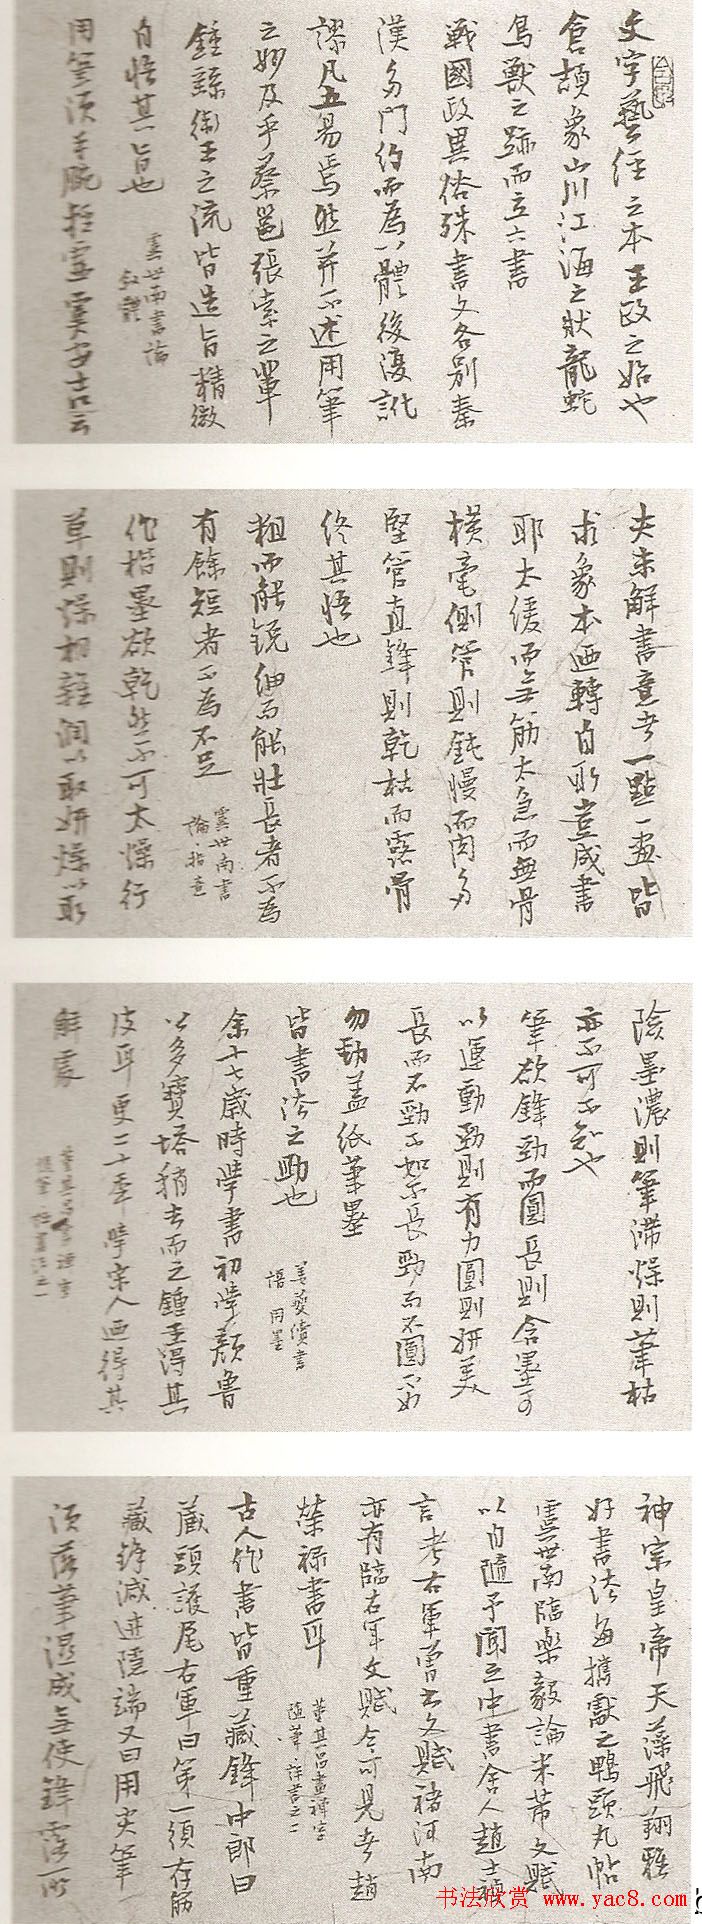 文字藝經之本王政之始也
倉頡象山川江海之狀龍蛇
鳥獸之跡而立六書
戰國政異俗殊書文各別秦
漢多門約而為八體後復訛
謬凡五易焉然并不述用筆
之妙及乎蔡邕張索之輩
鍾繇衛王之流皆造旨精微
自悟其旨也
虞世南書論
敘體
用筆須手腕輕虛虞安吉云
夫未解書意者一點一畫皆
求象本廼轉自取豈成書
耶太緩而无筋太急而無骨
橫毫側管則鈍慢而肉多
竪管直鋒則乾枯而露骨
終其悟也
粗而能銳細而能壯長者不為
有餘短者不為不足
虞世南書
論·指意
作楷墨欲乾然不可太燥行
草則燥相雜潤以取妍燥以取
險墨濃則筆滯燥則筆枯
亦不可不知也
筆欲鋒勁而圓長則含墨可
以運動勁則有力圓則妍美
長而不勁不如不長勁而不圓不如
勿勁蓋紙筆墨
皆書法之助也
姜夔續書
語用墨
余十七歲時學書初學顏魯
公多寶塔稍去而之鍾王得其
皮耳更二十年學宋人廼得其
解處
董其昌畫禪室
隨筆·評書法之一
神宗皇帝天藻飛翔雅
好書法每攜獻之鴨頭丸帖
虞世南臨樂毅論米芾文賦
以自隨予聞之中書舍人趙士禎
言考右軍曾書文賦褚河南
亦有臨右軍文賦今可見者趙
榮祿書耳
董其昌畫禪室
隨筆·評書之二
古人作書皆重藏鋒中郎曰
藏頭護尾右軍曰第一須存筋
藏鋒滅迹隱端又曰用尖筆
須落筆混成无使鋒露所
书法欣赏 www.yac8.com